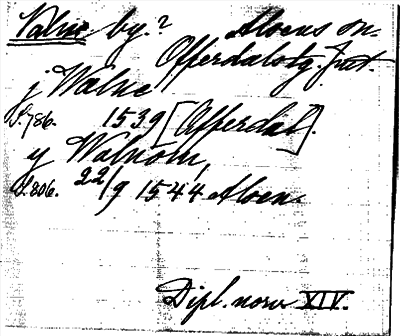 Valne by.? Alsens sn.
Offerdals tg. Jmt.
j Walne
S. 786. 1539 [Afferdal].
y Walnom,
S. 806. 22/9 1544 Alsen.
Dipl. norv XIV.